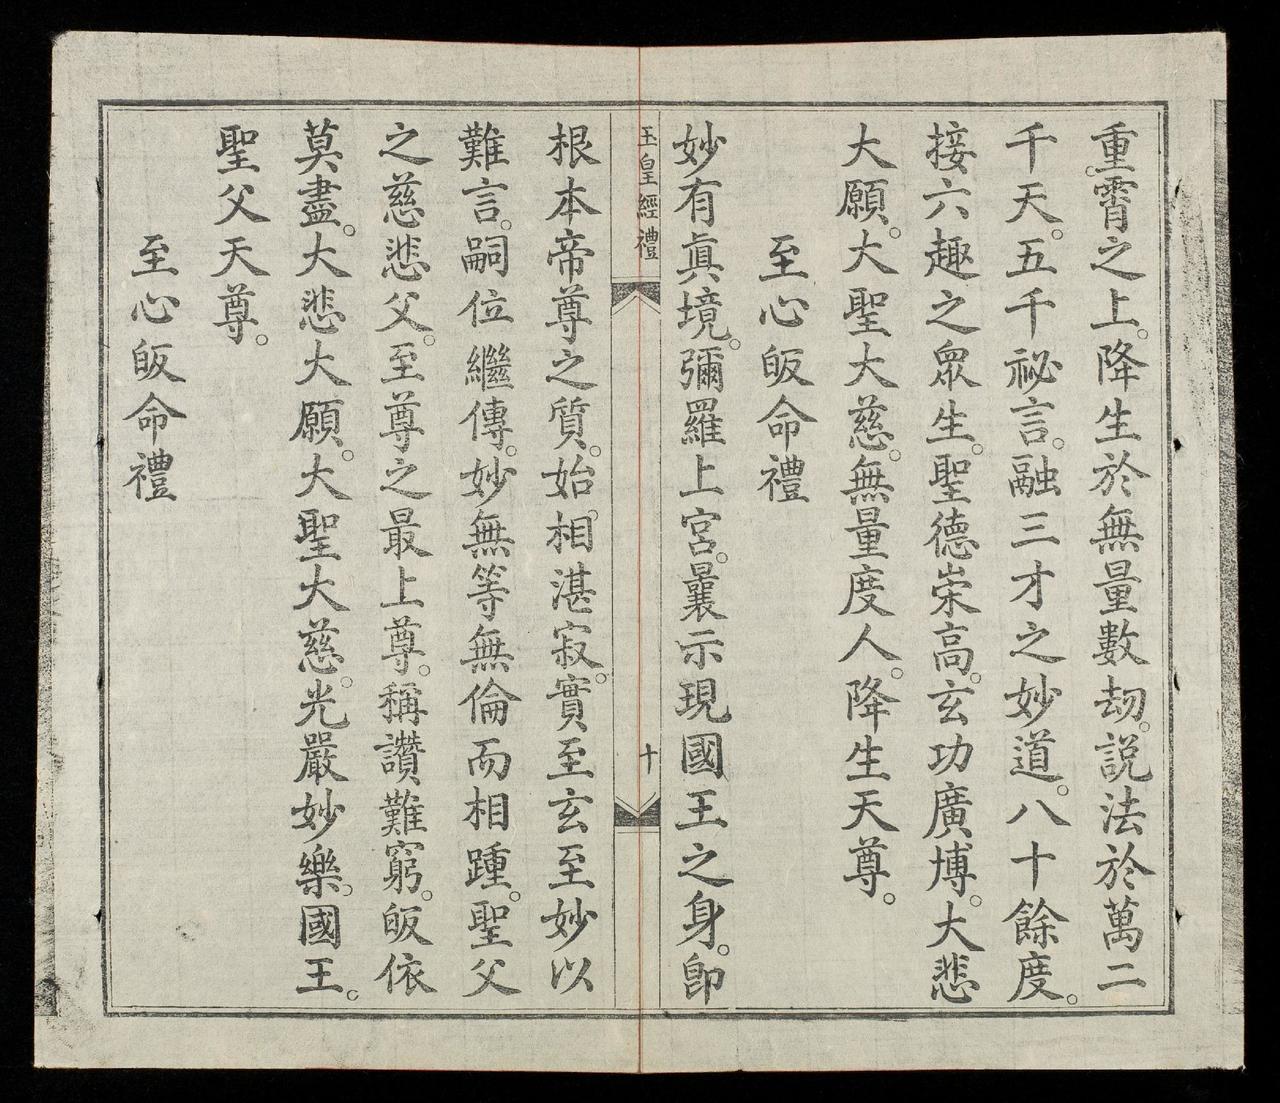 重霄之上。降生於無量數刼。説法於萬二
千天。五千祕言。融三才之妙道。八十餘度。
接六趣之眾生。聖德崇高。玄功廣博。大悲
大願。大聖大慈。無量度人。降生天尊。
至心皈命禮
妙有眞境。彌羅上宮。曩示現國王之身。卽
玉皇經禮
十
根本帝尊之質。始相湛寂。實至玄至妙以
難言。嗣位繼傳。妙無等無倫而相踵。聖父
之慈悲父。至尊之最上尊。稱讚難窮。皈依
莫盡。大悲大願。大聖大慈。光嚴妙樂。國王。
聖父天尊。
至心皈命禮